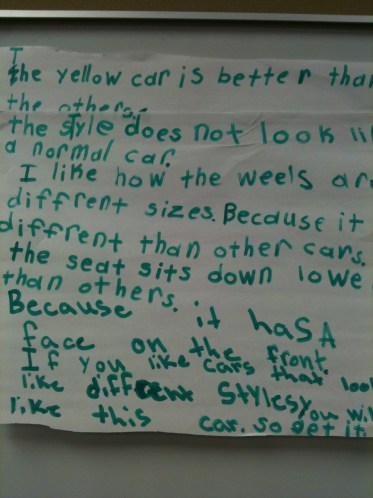 I
the yellow car is better than
the others.
the style does not look li
a normal car.
I like how the weels ar
diffrent sizes. Because it
diffrent than other cars.
the seat sits down lowe
than others.
Because it haSA
face on the front.
If you like cars that loo
like diffrent Styles you wil
like this car. so get it